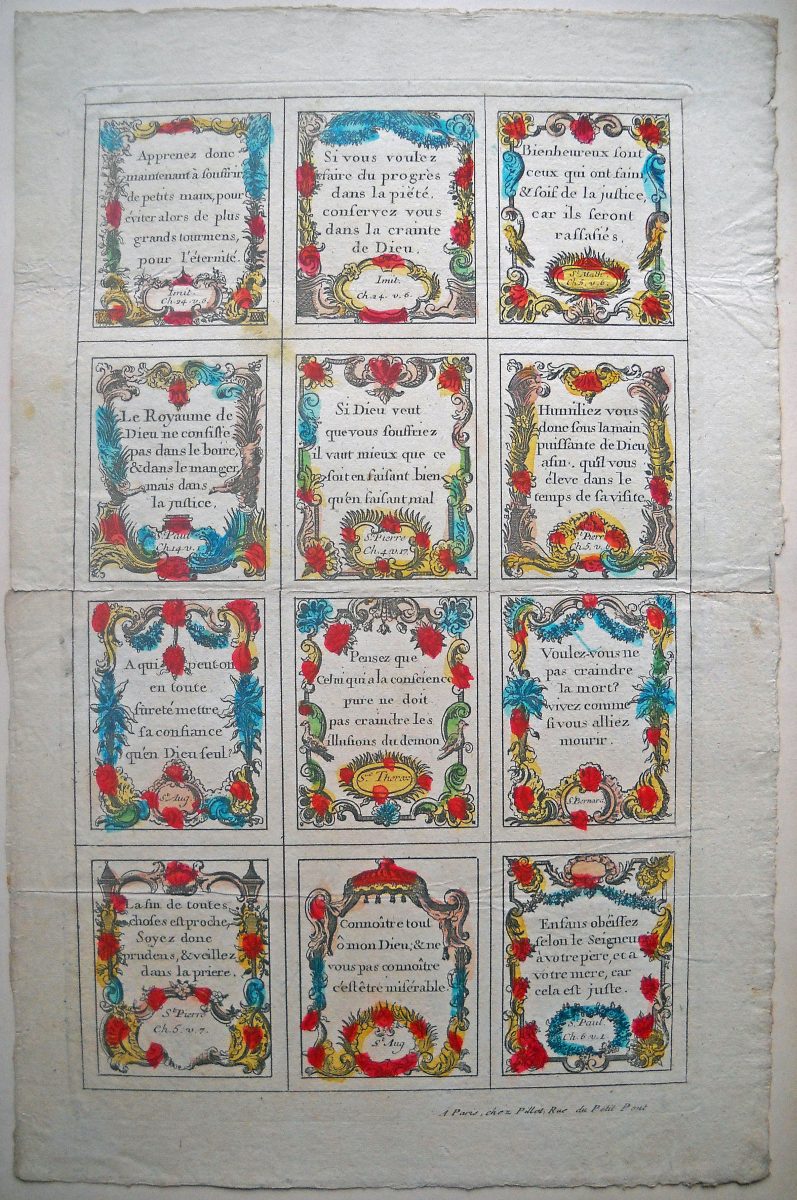 Apprenez donc
maintenant à souffrir
de petits maux, pour
éviter alors de plus
grands tourmens,
pour l'éternité.
Imit.
Ch. 24. v. 6.
Si vous voulez
faire du progrès
dans la piété.
conservez vous
dans la crainte
de Dieu.
Imit.
Ch. 24. v. 6.
Bienheureux sont
ceux qui ont faim
& soif de la justice,
car ils seront
rassasiés.
St. Math.
Ch. 5. v. 6.
Le Royaume de
Dieu ne consiste
pas dans le boire,
& dans le manger
mais dans
la justice.
St. Paul
Ch. 14. v.
Si Dieu veut
que vous souffriez
il vaut mieux que ce
soit en faisant bien
qu'en faisant mal
St. Pierre
Ch. 4. v. 17.
Humiliez vous
donc sous la main
puissante de Dieu
afin. qu'il vous
éleve dans le
temps de sa visite.
St. Pierre
Ch. 5. v.
A qui peut on
en toute
sûreté mettre
sa confiance
qu'en Dieu seul?
St. Aug.
Pensez que
Celui qui a la conscience
pure ne doit
pas craindre les
illusions du demon
Ste. Therese
Voulez-vous ne
pas craindre
la mort?
vivez comme
si vous alliez
mourir.
S. Bernard
La fin de toutes
choses est proche,
Soyez donc
prudens, & veillez
dans la priere.
St. Pierre
Ch. 5. v. 7.
Connoître tout
ô mon Dieu, & ne
vous pas connoître
c'est être misérable
St. Aug.
Enfans obéissez
selon le Seigneur
à votre père, et à
votre mere, car
cela est juste.
S. Paul.
Ch. 6. v. 1.
A Paris, chez Pillot, Rue du Petit Pont